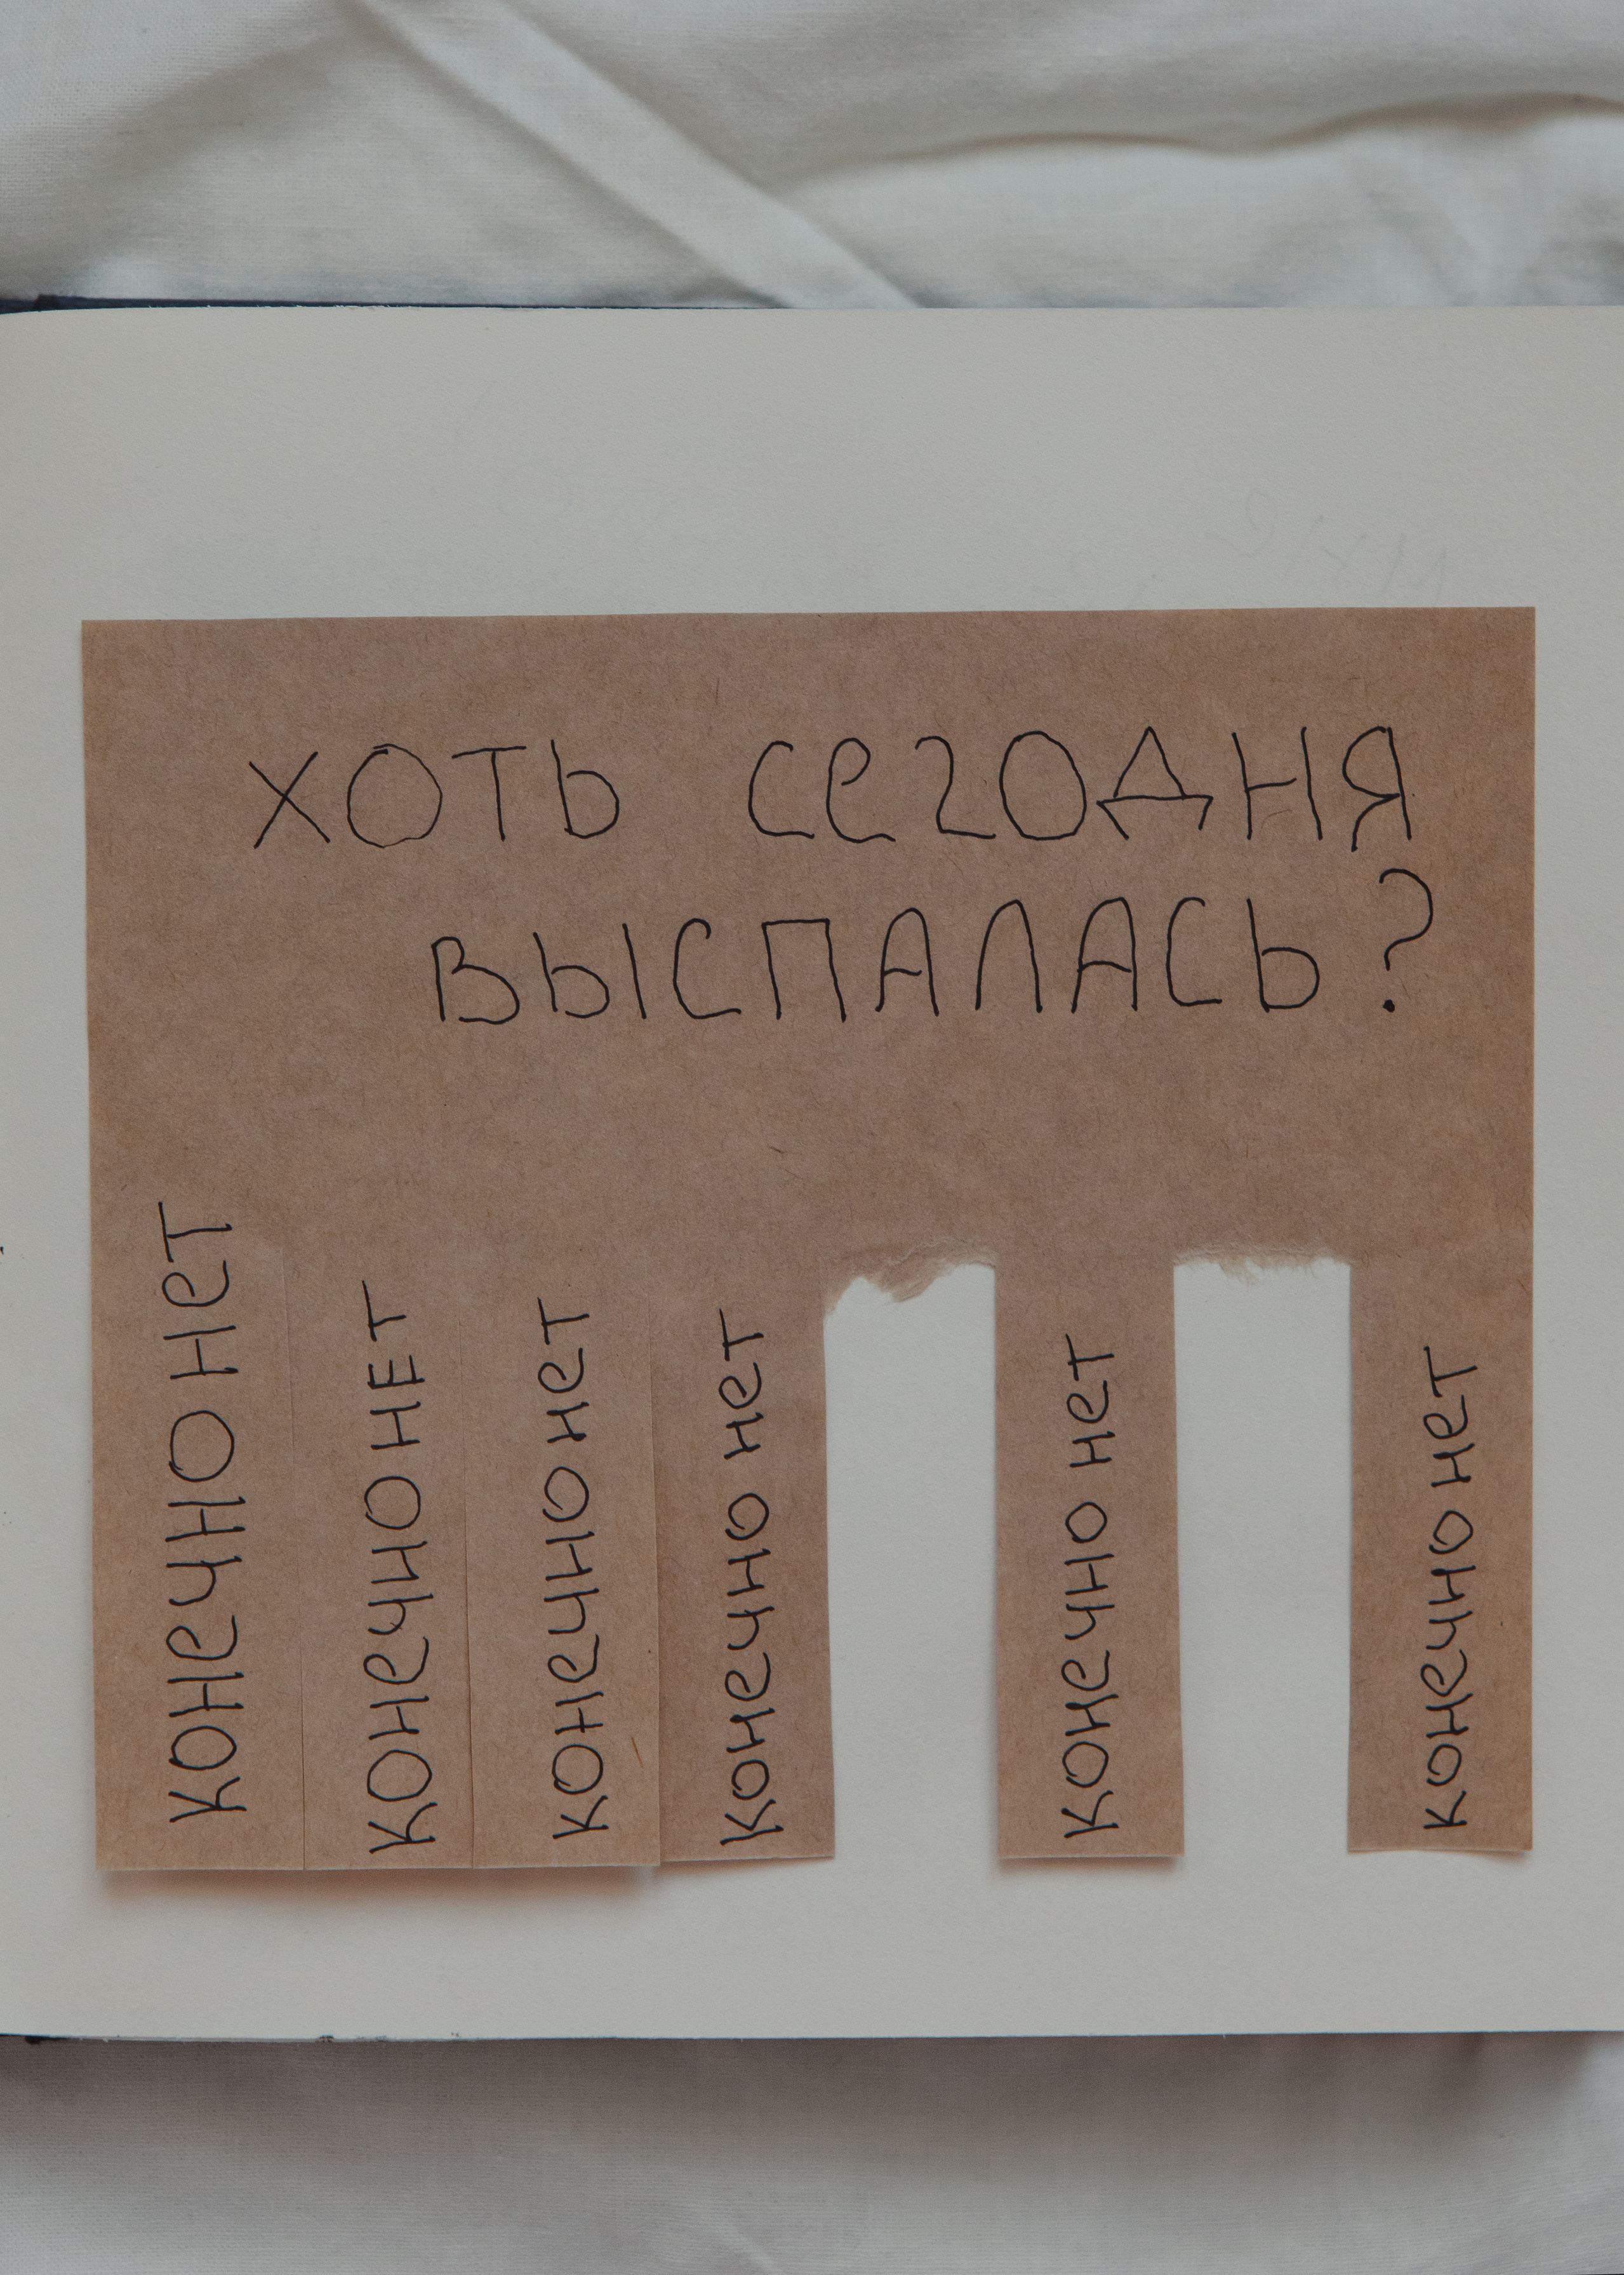 хоть сегодня
выспалась?
конечно нет
конечно нет
конечно нет
конечно нет
конечно нет
конечно нет